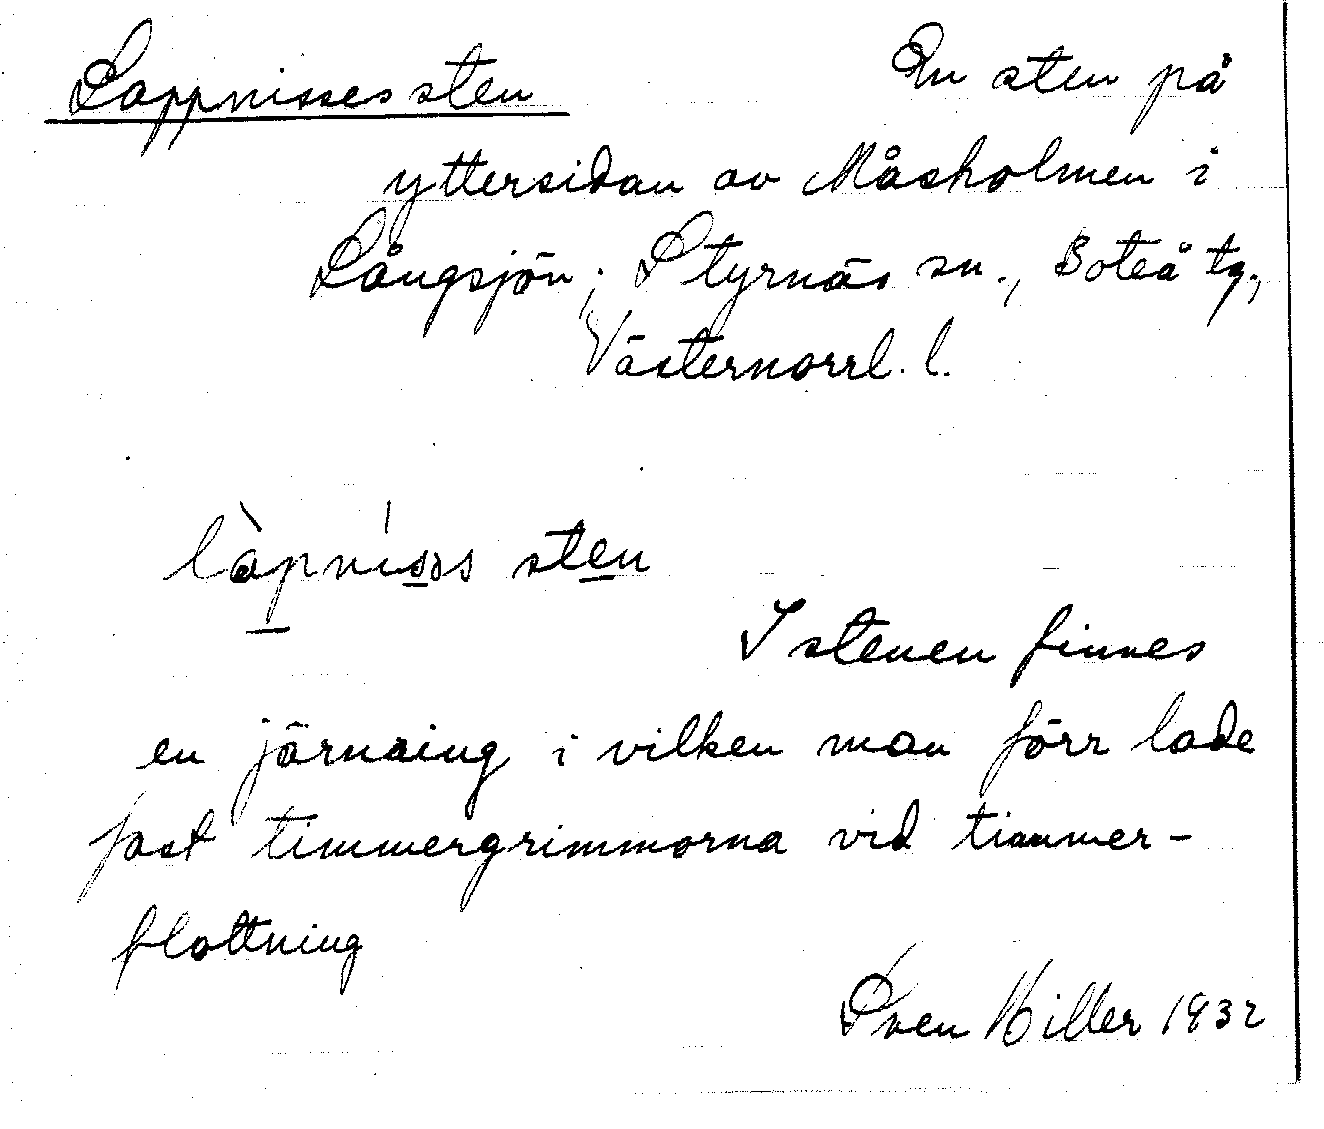 Lappnisses sten En sten på
yttersidan av Måsholmen i
Långsjön; Styrnäs sn., Boteå tg.,
Västernorrl. l.
làpníss sten
I stenen finnes
en järnring i vilken man förr lade
fast timmergrimmorna vid timmer-
flottning
Sven Hiller 1932